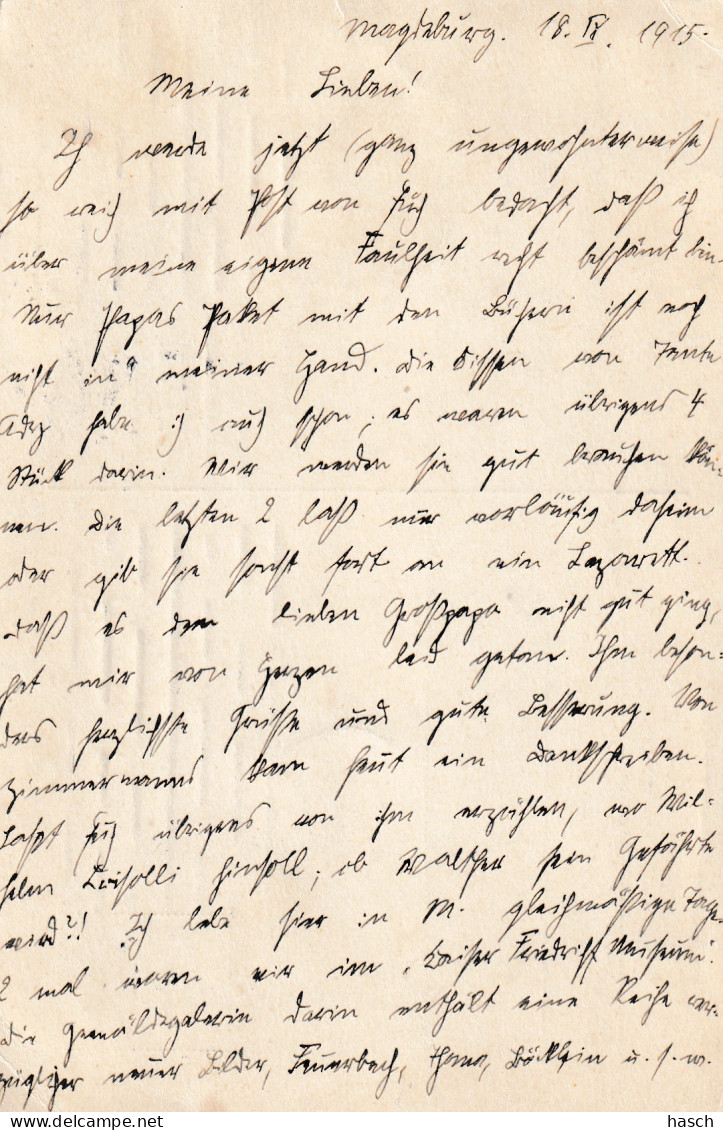 Magdeburg. 18. IV. 1915.
Meine Lieben!
Ich werde jetzt (ganz ungewohnterweise)
so reich mit Post von Euch bedacht, daß ich
über meine eigene Faulheit recht beschämt bin.
Nur Papas Paket mit den Büchern ist noch
nicht in meiner Hand. Die Kissen von Tante
Ady habe ich auch schon; es waren übrigens 4
Stück darin. Wir werden sie gut brauchen kön-
nen. Die letzten 2 laß nur vorläufig daheim
oder gib sie sonst fort an ein Lazarett.
Daß es dem lieben Großpapa nicht gut ging,
hat mir von Herzen leid getan. Ihm beson-
ders herzlichste Grüße und gute Besserung. Von
Zimmermanns kam heut ein Dankschreiben.
Laßt Euch übrigens von ihm erzählen, wo Wil-
helm hinsoll; ob Walther sein Gefährte
wird?! Ich lebe hier in M. gleichmäßige Tage.
2 mal waren wir im "Kaiser Friedrich Museum".
Die Gemäldegalerie darin enthält eine Reihe vor-
züglicher neuer Bilder, Feuerbach, Thoma, Böcklin u. s. w.
hasch
delcampe.net